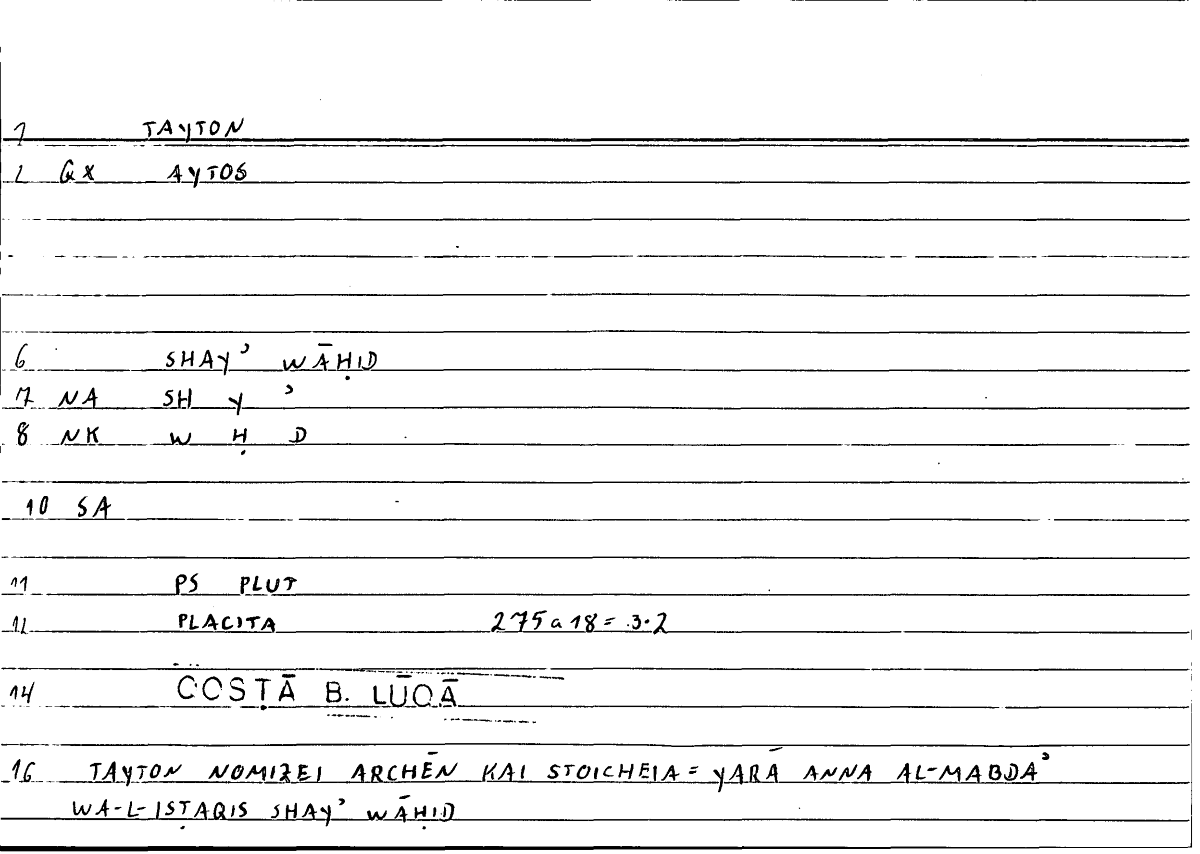 1 TAYTON
2 QX AYTOS
6 SHAYʾ WĀḤID
7 NA SH Y ʾ
8 NK W Ḥ D
10 SA
11 PS PLUT
12 PLACITA 275a18 = 3.2
14 COSṬĀ B. LŪQĀ
16 TAYTON NOMIZEI ARCHĒN KAI STOICHEIA = YARĀ ANNA AL-MABDAʾ
WA-L-ISṬAQIS SHAYʾ WĀḤID